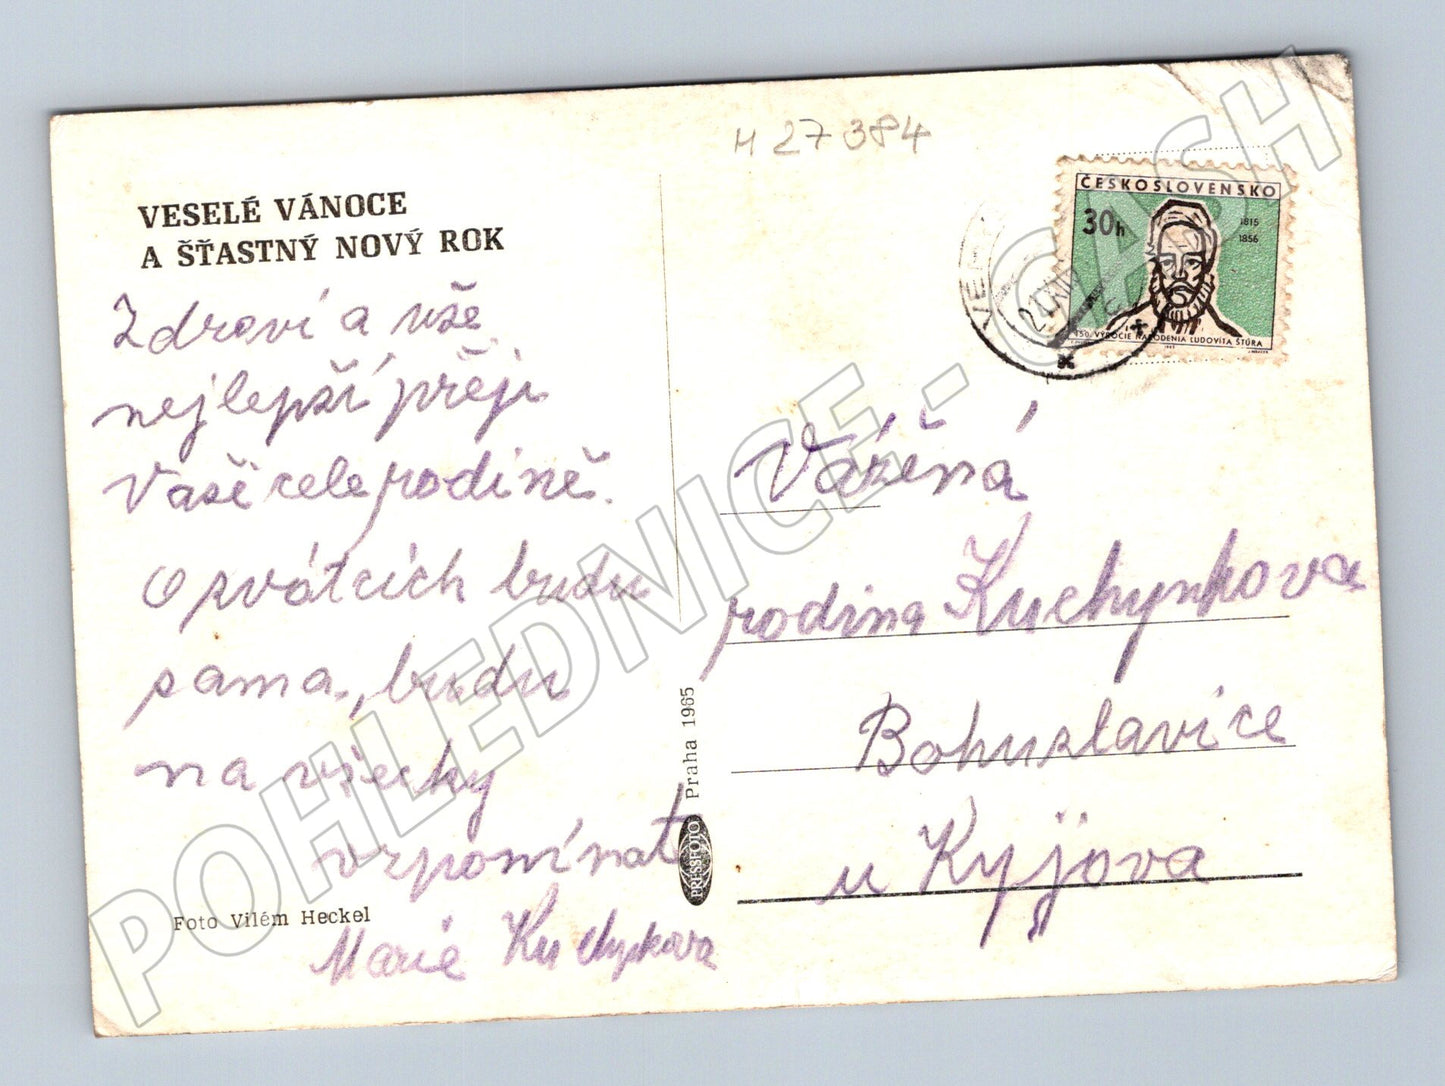 H 27384
VESELÉ VÁNOCE
A ŠŤASTNÝ NOVÝ ROK
Zdraví a vše
nejlepší přeji
Vaší celé rodině.
O svátcích budu
sama, budu
na všecky
vzpomínat
Marie Kuchynkova
Foto Vilém Heckel
PRESSFOTO
Praha 1965
ČESKOSLOVENSKO
30h
1815
1856
150. VÝROČIE NARODENIA ĽUDOVÍTA ŠTÚRA
Vážená
rodina Kuchynkova
Bohuslavice
u Kyjova
POHLEDNICE - CASH